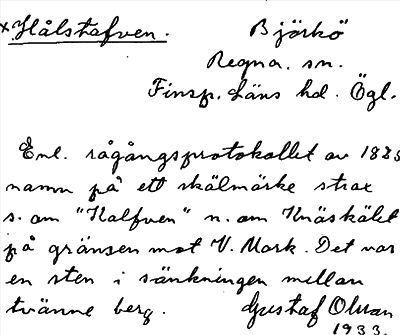 x Hålstafven.
Björkö
Regna. sn.
Finsp. Läns hd. Ögl.
Enl. rågångsprotokollet av 1885
namn på ett skälmärke strax
s. om "Kalfven" n. om Knäskälet
på gränsen mot V. Mark. Det var
en sten i sänkningen mellan
tvänne berg.
Gustaf Olsson
1933.